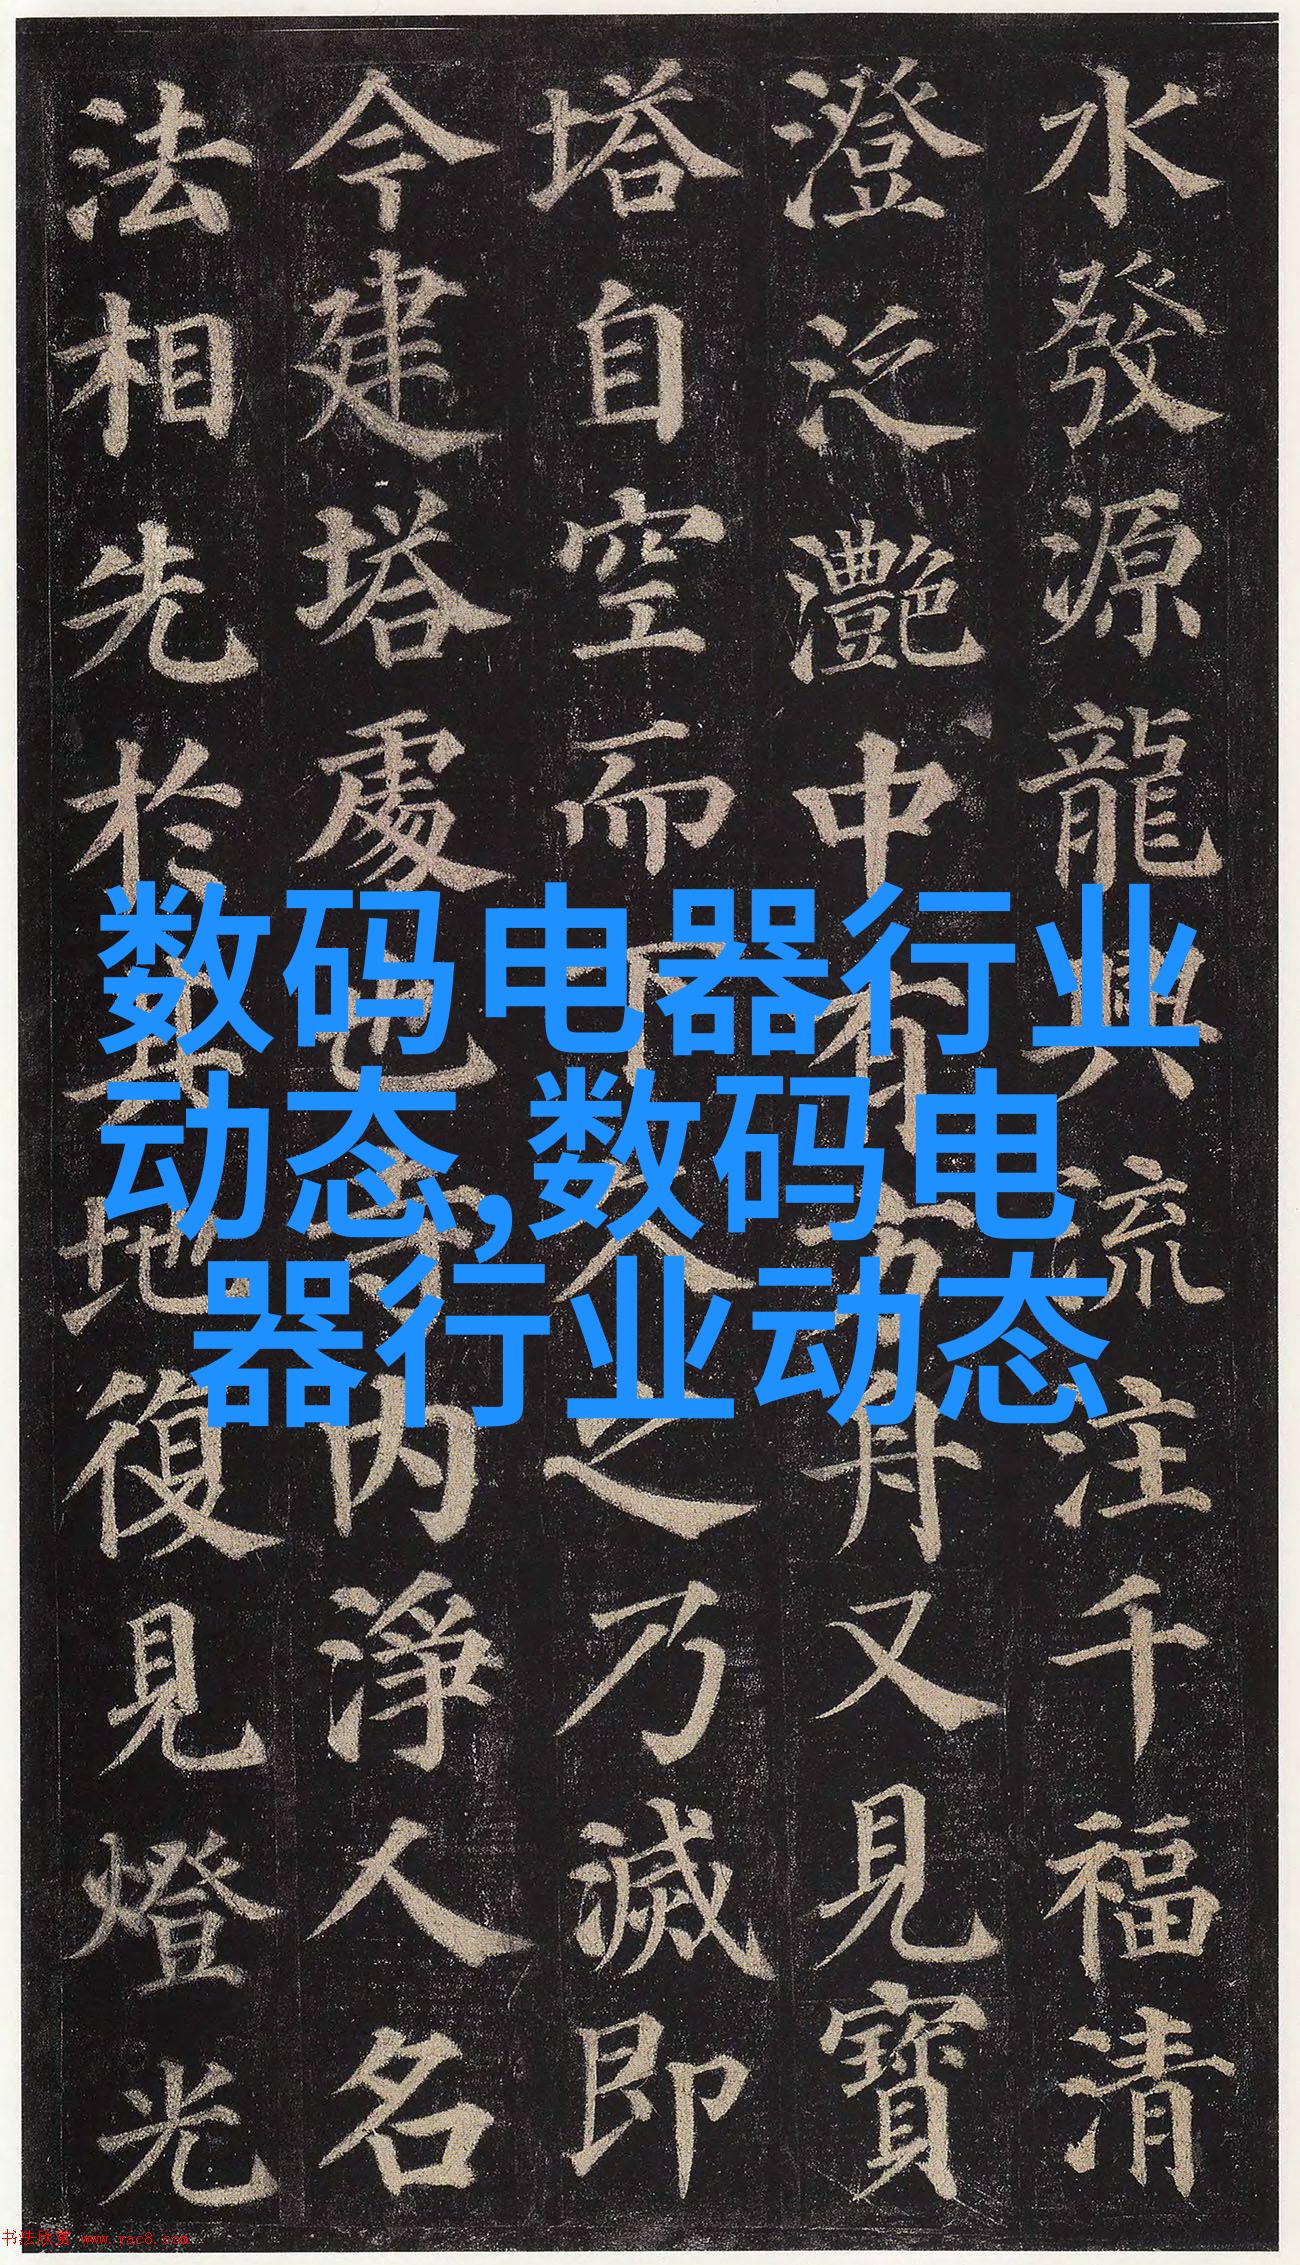 水發源龍興流注千福清
澄泛灧中有方舟又見寶
塔自空而下久之乃滅即
今建塔處也寺內淨人名
法相先於其地復見燈光
数码电器行业
动态,数码电
器行业动态
书法欣赏 www.yac8.com